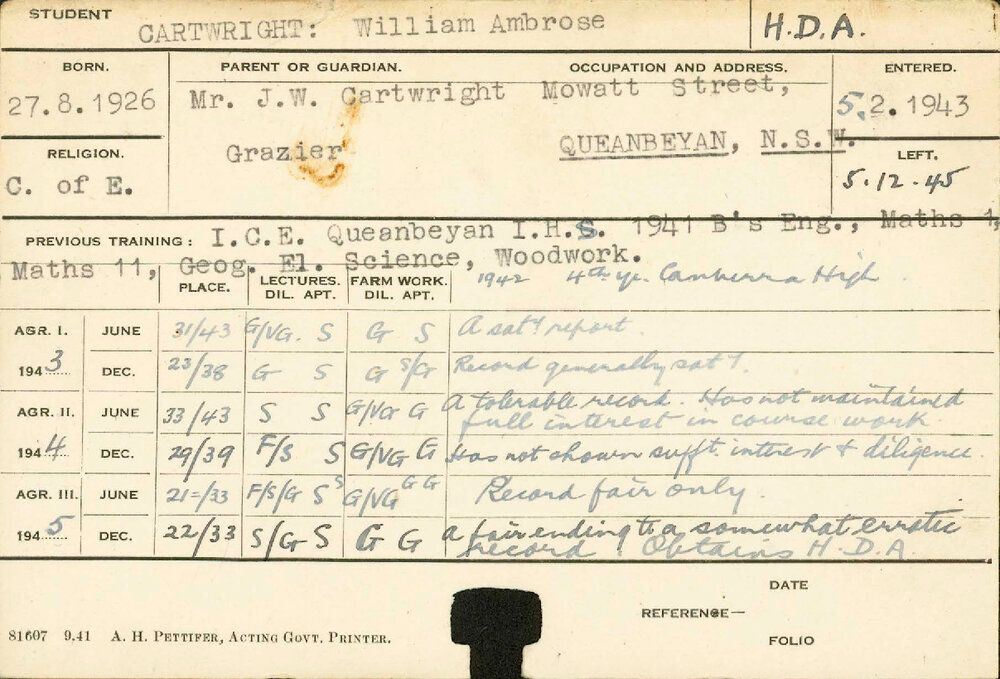 STUDENT
CARTWRIGHT: William Ambrose H.D.A.
BORN. PARENT OR GUARDIAN. OCCUPATION AND ADDRESS. ENTERED.
27.8.1926 Mr. J.W. Cartwright Mowatt Street, 5.2.1943
RELIGION. Grazier QUEANBEYAN, N.S.W. LEFT.
C. of E. 5.12.45
PREVIOUS TRAINING: I.C.E. Queanbeyan I.H.S. 1941 B's Eng., Maths 1,
Maths 11, Geog. El. Science, Woodwork.
1942 4th yr. Canberra High
PLACE. LECTURES. FARM WORK.
DIL. APT. DIL. APT.
AGR. I. JUNE 31/43 G/VG. S G S A satf report.
1943 DEC. 23/38 G S G S/G Record generally satf.
AGR. II. JUNE 33/43 S S G/VG G A tolerable record. Has not maintained
full interest in course work.
1944 DEC. 29/39 F/S S G/VG G Has not shown sufft. interest + diligence.
AGR. III. JUNE 21=/33 F/S/G S S G/VG G G Record fair only.
1945 DEC. 22/33 S/G S G G A fair ending to a somewhat erratic
record. Obtains H.D.A.
DATE
REFERENCE—
FOLIO
81607 9.41 A. H. PETTIFER, ACTING GOVT. PRINTER.